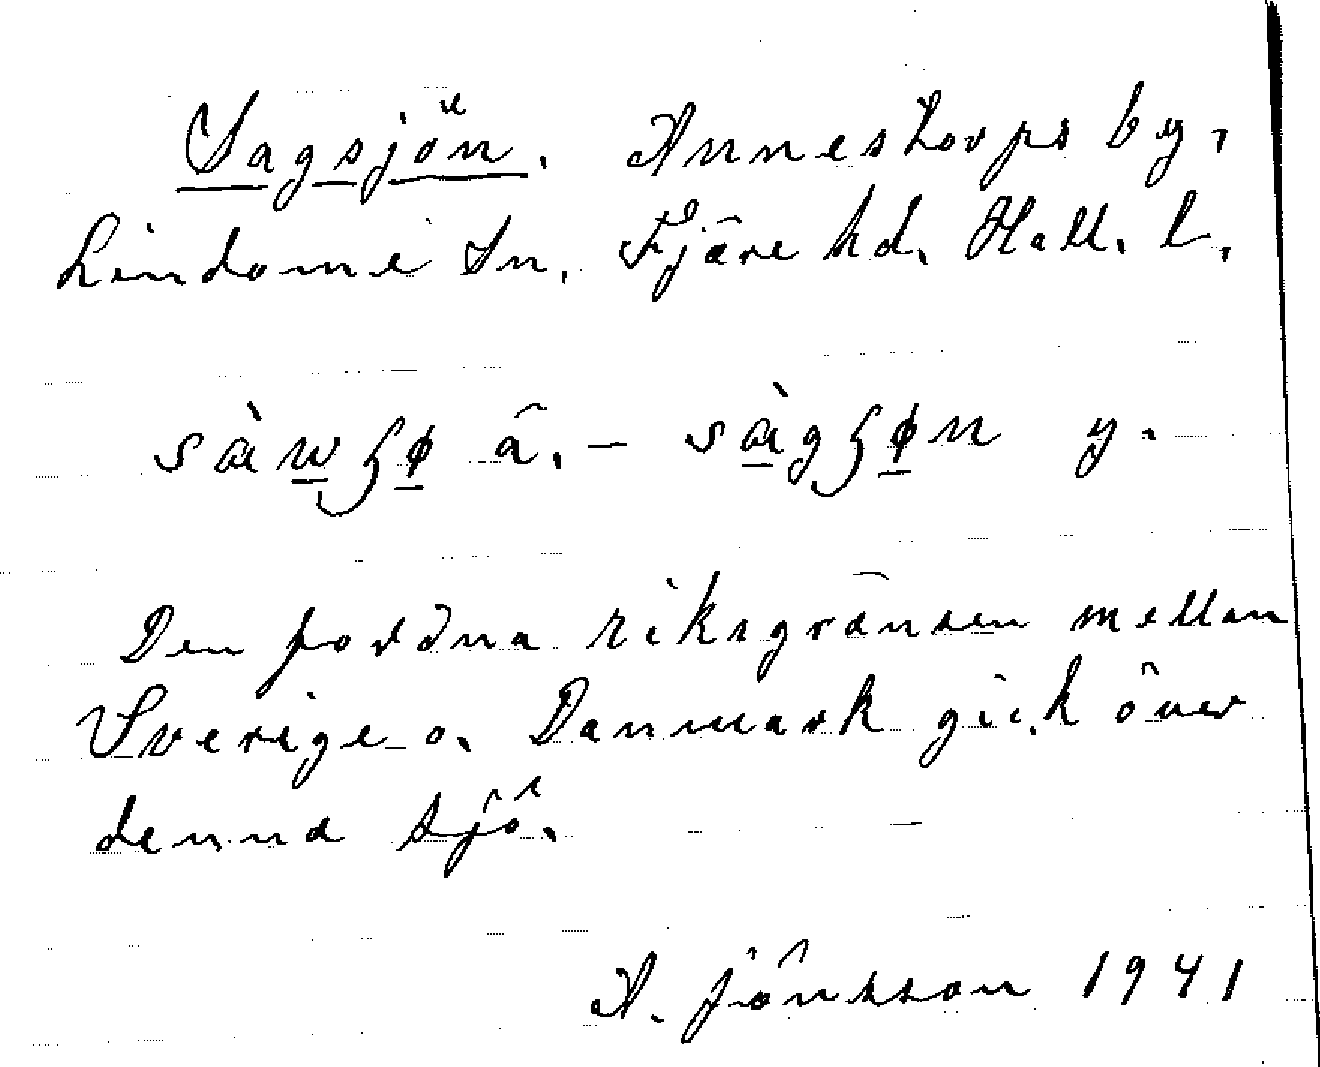 Sagsjön. Annestorps by,
Lindome Sn. Fjäre hd. Hall. l.
sàwʂø ä. – sàgʂøn y.
Den fordna riksgränsen mellan
Sverige o. Danmark gick över
denna sjö.
A. Jönsson 1941